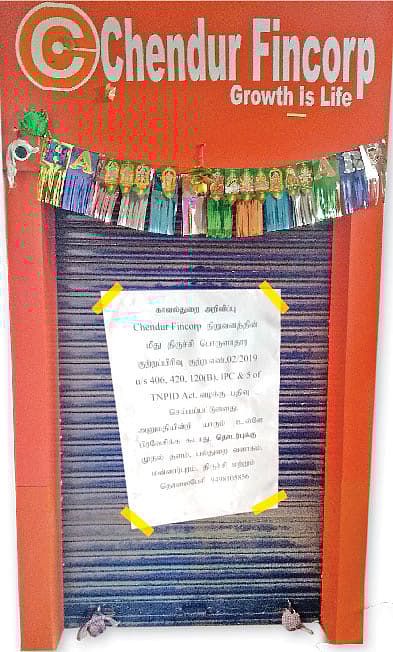 Chendur Fincorp
Growth is Life
காவல்துறை அறிவிப்பு
Chendur Fincorp நிறுவனத்தின்
மீது திருச்சி பொருளாதார
குற்றப்பிரிவு குற்ற எண்.02/2019
u/s 406, 420, 120(B), IPC & 5 of
TNPID Act. வழக்கு பதிவு
செய்யப்பட்டுள்ளது.
அனுமதியின்றி யாரும் உள்ளே
பிரவேசிக்க கூடாது. தொடர்புக்கு
முதல் தளம், பல்துறை வளாகம்,
மன்னார்புரம், திருச்சி மற்றும்
தொலைபேசி 9498105856